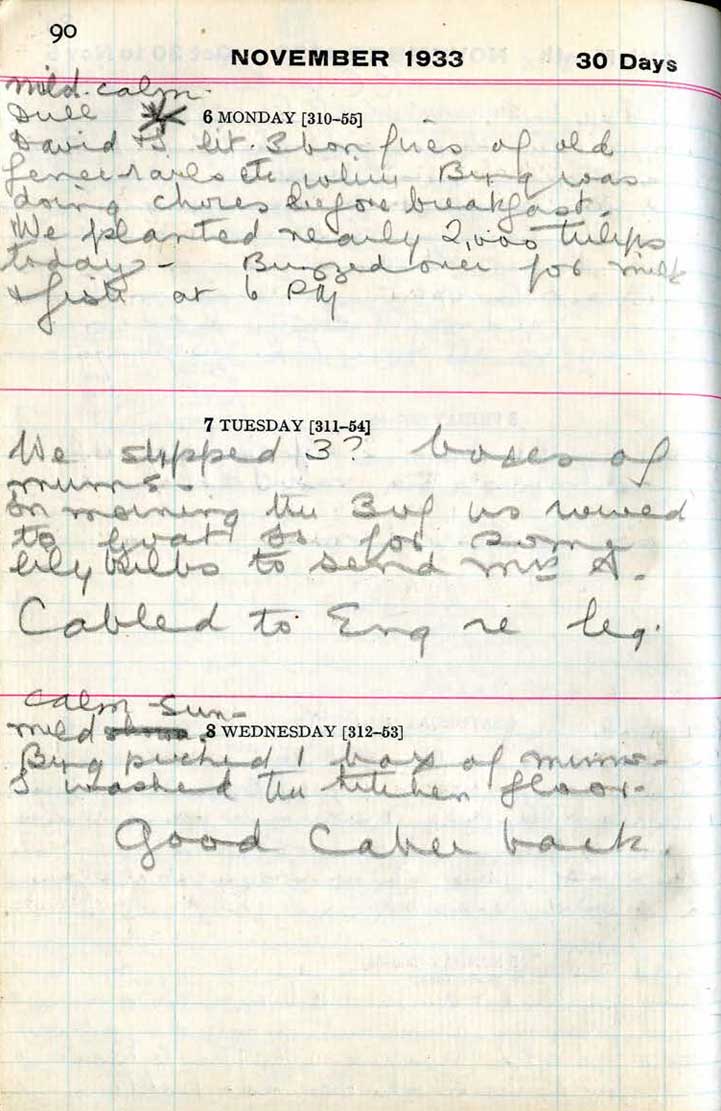 90
NOVEMBER 1933 30 Days
mild. calm.
Dull
6 MONDAY [310–55]
David & I lit. 3 bon fires of old
fence rails etc while Bing was
doing chores before breakfast.
We planted nearly 2,000 tulips
today - Buzzed over for milk
& fish at 6 PM
7 TUESDAY [311–54]
We shipped 3? boxes of
mums.
In morning the 3 of us rowed
to for some
lily bulbs to send Mrs A.
Cabled to Eng re leg.
calm - Sun -
mild
8 WEDNESDAY [312–53]
Bing picked 1 box of mums -
I washed the kitchen floor -
Good Cable back.